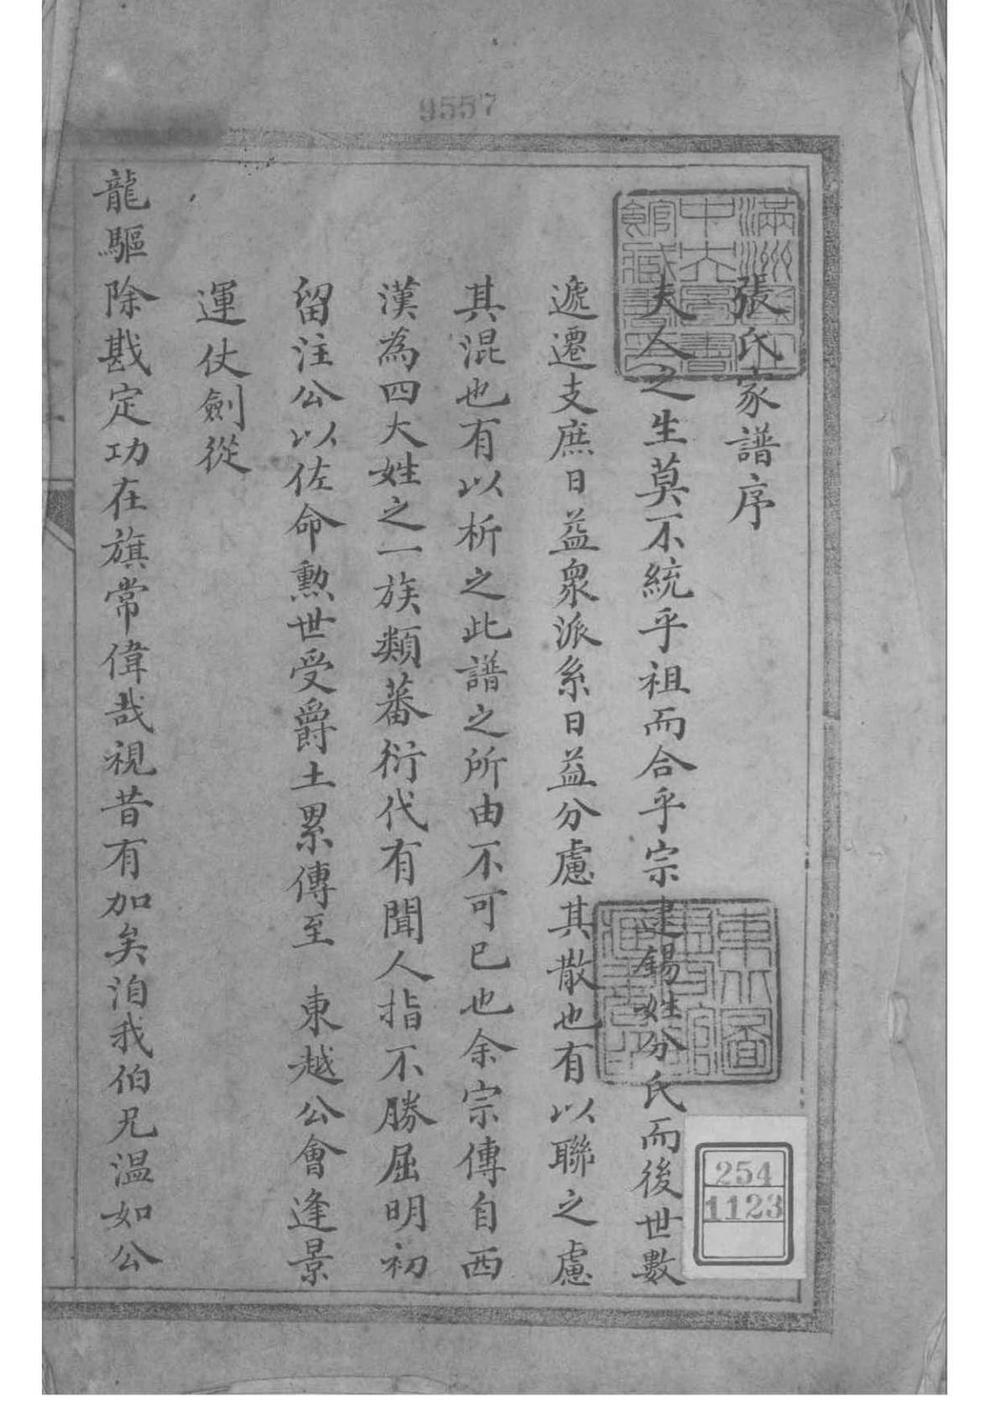 9557
滿洲國立中央圖書館藏書印
張氏家譜序
夫人之生莫不統乎祖而合乎宗建錫姓分氏而後世數
遞遷支庶日益衆派系日益分慮其散也有以聯之慮
其混也有以析之此譜之所由不可已也余宗傳自西
漢為四大姓之一族類蕃衍代有聞人指不勝屈明初
留注公以佐命勲世受爵土累傳至 東越公會逢景
運仗劍從
龍驅除戡定功在旗常偉哉視昔有加矣洎我伯兄溫如公
東北圖書館
254
1123